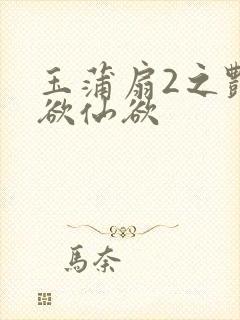 玉蒲扇2之豔
欲仙欲
馬奈